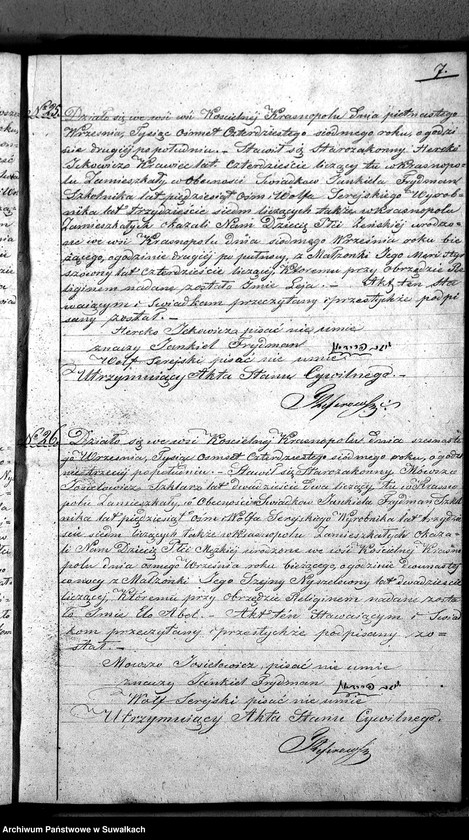 7.
No 25. Działo się we wsi Kościelnej Krasnopolu dnia piętnastego
Września, Tysiąc Osmset Czterdziestego siodmego roku, o godzi
nie drugiej po południu. – Stawił się Starozakonny Hercko
Ickowicz Krawiec lat Czterdzieście liczący tu w Krasnopo-
lu Zamieszkały, w Obecności Swiadkow Jankiela Frydmana
Szkolnika lat pięćdziesiąt osm i Wolfa Serejskiego Wyrob-
nika lat trzydzieście siedm liczących także w Krasnopolu
Zamieszkałych okazali Nam Dziecię Płci Zeńskiej urodzo-
ne we wsi Krasnopolu dnia siodmego Września roku bie-
żącego, o godzinie drugiej po połnocy, z Małżonki Jego Meri
szowny lat Czterdzieście liczącej, Ktoremu przy Obrzędzie Re-
ligijnem nadane zostało Imie Leja. – Akt ten Sta
wającym i Swiadkom przeczytany i przez tychże podpi
sany został. –
Hercko Ickowicz pisać nie umie
znaczy Jankiel Frydman
Wolf Serejski pisać nie umie
Utrzymuiący Akta Stanu Cywilnego. –
No 26. Działo się we wsi Kościelnej Krasnopolu dnia
go Września, Tysiąc Osmset Czterdziestego siodmego roku, o godzi
nie trzeciej po południu. – Stawił się Starozakonny Mowsza
Josielowicz Szklarz lat dwadzieście dwa liczący tu w Krasno
polu Zamieszkały, w Obecności Swiadkow Jankiela Frydman Szkol
nika lat pięćdziesiąt osm i Wolfa Serejskiego Wyrobnika lat trzydzie
ście siedm liczących także w Krasnopolu Zamieszkałych okaza-
li Nam Dziecię Płci Męzkiej urodzone we wsi Kościelnej Krasno
polu dnia osmego Września roku bieżącego, o godzinie dwunastej
z Małżonki Jego Szejny lat dwadzieście
liczącej, Ktoremu przy Obrzędzie Religijnem nadane zosta
ło Imie Elo Abel. – Akt ten Stawaiącym i Swiad
kom przeczytany i przez tychże podpisany zo=
stał. –
Mowsza Josielowicz pisać nie umie
znaczy Jankiel Frydman
Wolf Serejski pisać nie umie
Utrzymuiący Akta Stanu Cywilnego.
Archiwum Państwowe w Suwałkach